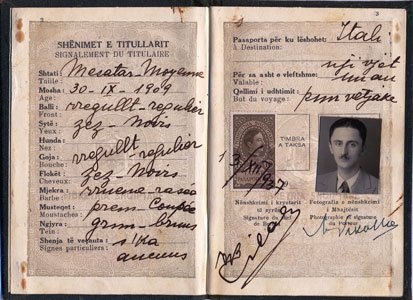 3
SHËNIMET E TITULLARIT
SIGNALEMENT DU TITULAIRE
Shtati: Mesatar - Moyenne
Taille:
Mosha: 30-IX-1909
Age:
Balli: rregullt - regulier
Front:
Sytë: zez - Noirs
Yeux:
Hunda:
Nez:
Goja: rregullt - regulier
Bouche:
Flokët: zez - Noirs
Cheveux:
Mjekra: rruene - rasée
Barbe:
Musteqet: prem - Coupée
Moustaches:
Ngjyra: grun - brun
Tein:
Shenja të veçunta: s'ka
Signes particuliers: aucuns
3
Passaporta për ku lëshohet: Itali
à Destination:
Për sa asht e vleftshme: nji vjet
Valable: un an
Qellimi i udhtimit: pun vetjake
But du voyage:
TIMBRA
A TAKSA
Nënshkrimi i kryetarit
të zyrës
Signature du chef
Fotografia e nënshkrimi
i Mbajtësit
Photographie et signature
du Porteur